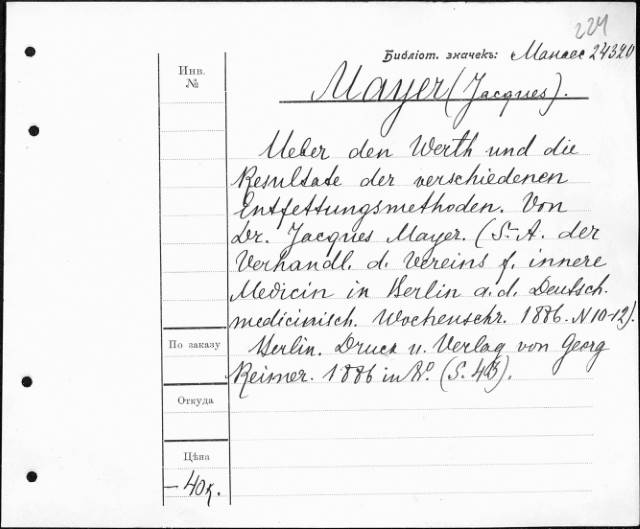 224
Библіот. значекъ: Мансес 24320
Инв.
№
Mayer (Jacques).
Ueber den Werth und die
Resultate der verschiedenen
Entfettungsmethoden. Von
Dr. Jacques Mayer. (S.-A. der
Verhandl. d. Vereins f. innere
Medicin in Berlin a. d. Deutsch.
medicinisch. Wochenschr. 1886. N 10-12).
По заказу
Berlin. Druck u. Verlag von Georg
Reimer. 1886 in 8º. (S. 43).
Откуда
Цѣна
– 40 к.